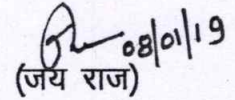 08/01/19
(जय राज)